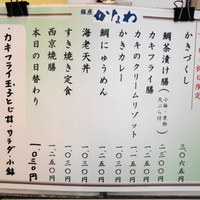 銀座 かなわ
かきづくし 三〇六五円
鯛茶漬け膳（小鉢・煮物 天ぷら付） 二三〇〇円
カキフライ膳 一二五〇円
カキのクリームリゾット
かきカレー 一〇三〇円
鯛にゅうめん 一〇三〇円
海老天丼 一〇三〇円
すき焼き定食 一二五〇円
西京焼膳 一二五〇円
本日の日替わり 一〇三〇円
・カキフライ玉子とじ丼、サラダ・小鉢 1030円